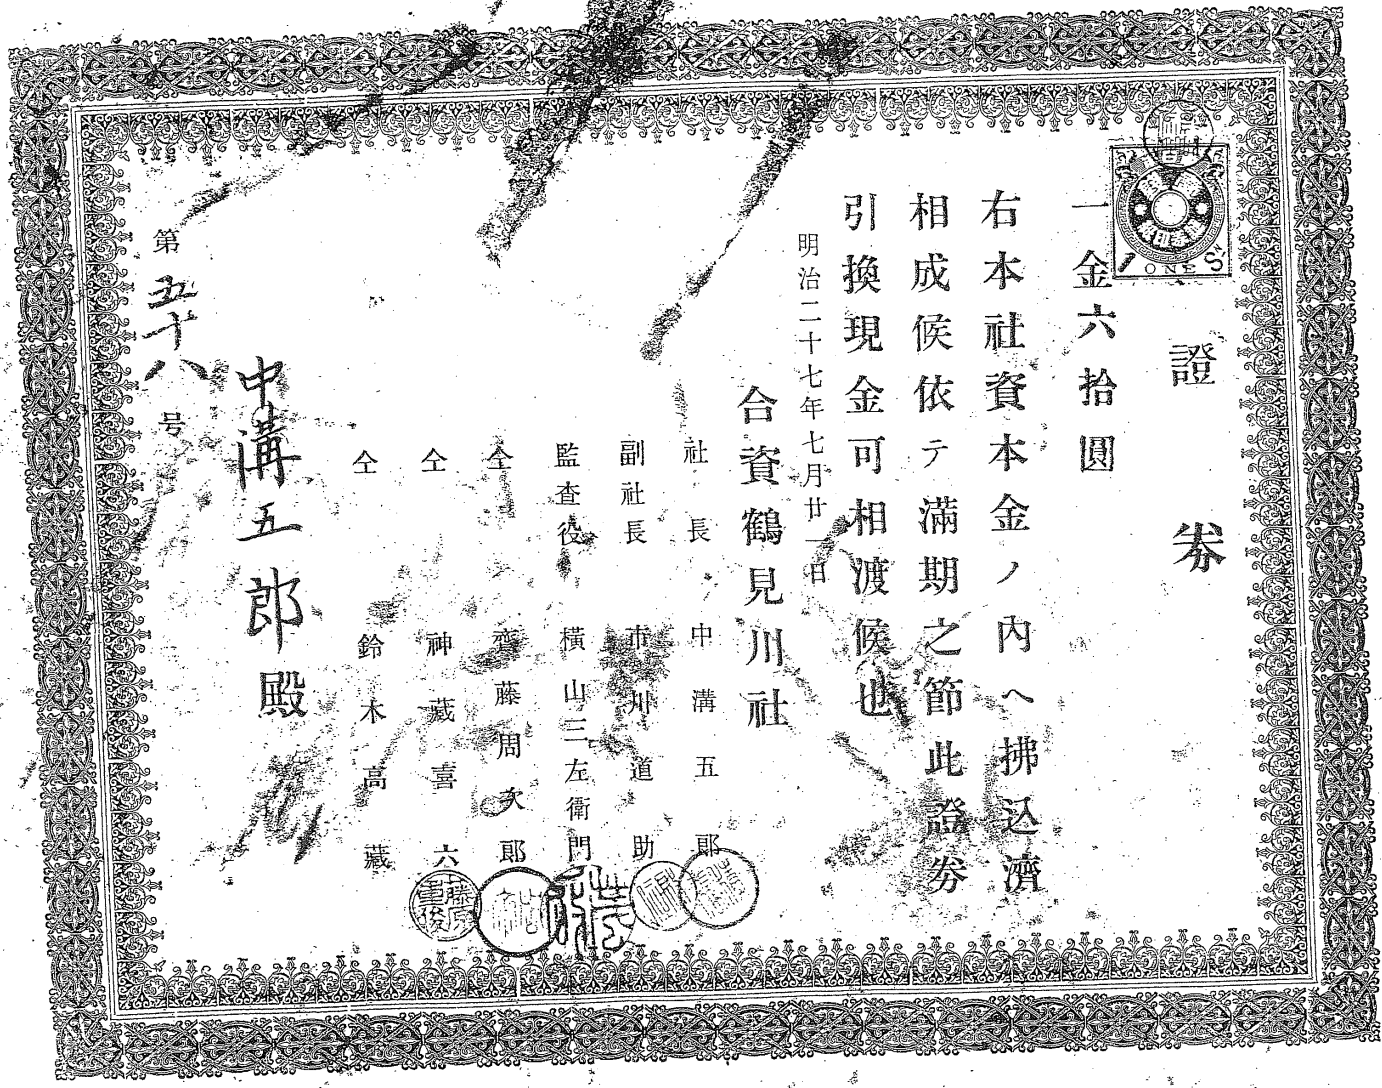 證券
一金六拾圓
右本社資本金ノ內ヘ拂込濟
相成候依テ滿期之節此證券
引換現金可相渡候也
明治二十七年七月廿一日
合資鶴見川社
社長 中溝五郎
副社長 市川道助
監査役 横山三左衛門
仝 齊藤周次郎
仝 神藏喜六
仝 鈴木高藏
中溝五郎殿
第五十八号
1 ONE Sⁿ
藤原重俊